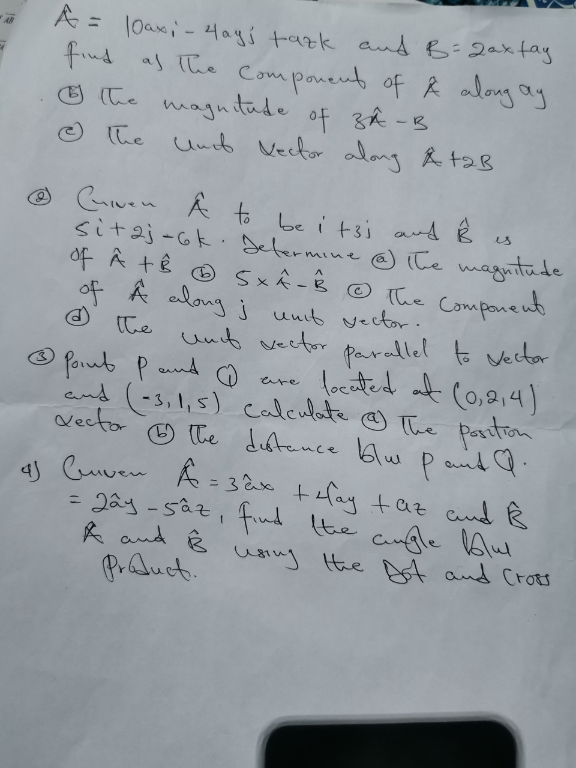 AB
Â = 10axi - 4ayj + azk and B = 2ax+ay
find a) The Component of Â along ay
(b) The magnitude of 3Â - B
(c) The Unit Vector along Â+2B
(2) Given Â to be i + 3j and B̂ is
5i + 2j - 6k. Determine (a) The magnitude
of Â + B̂ (b) 5 x Â - B̂ (c) The Component
of Â along j unit vector.
(d) The unit vector parallel to vector
(3) Point P and Q are located at (0,2,4)
and (-3,1,5) Calculate (a) The position
vector (b) The distance b/w P and Q.
4) Given Â = 3âx + 4ây + az and B̂
= 2ây - 5âz, find the angle b/w
Â and B̂ using the Dot and Cross
Product.